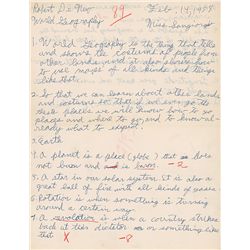 Robert De Niro 89 Feb. 14, 1958
World Geography Miss
1. World Geography is the thing that tells
and shows the costumes of people from
other lands and it also shows how
to use maps of all kinds and things
like that.
2. So that we can learn about other lands
and costumes so that if we ever go to
these places we will know how to go to
places and where to go, and to know al-
ready what to expect.
3. Earth
4. A planet is a place (globe) that does
not burn and is warm. -2
5. A star in our solar system. It is also a
great ball of fire with all kinds of gases
6. Rotation is when something is turning
around a certain way.
7. A revolution is when a country strikes
back at its dictator or something like
that X -8